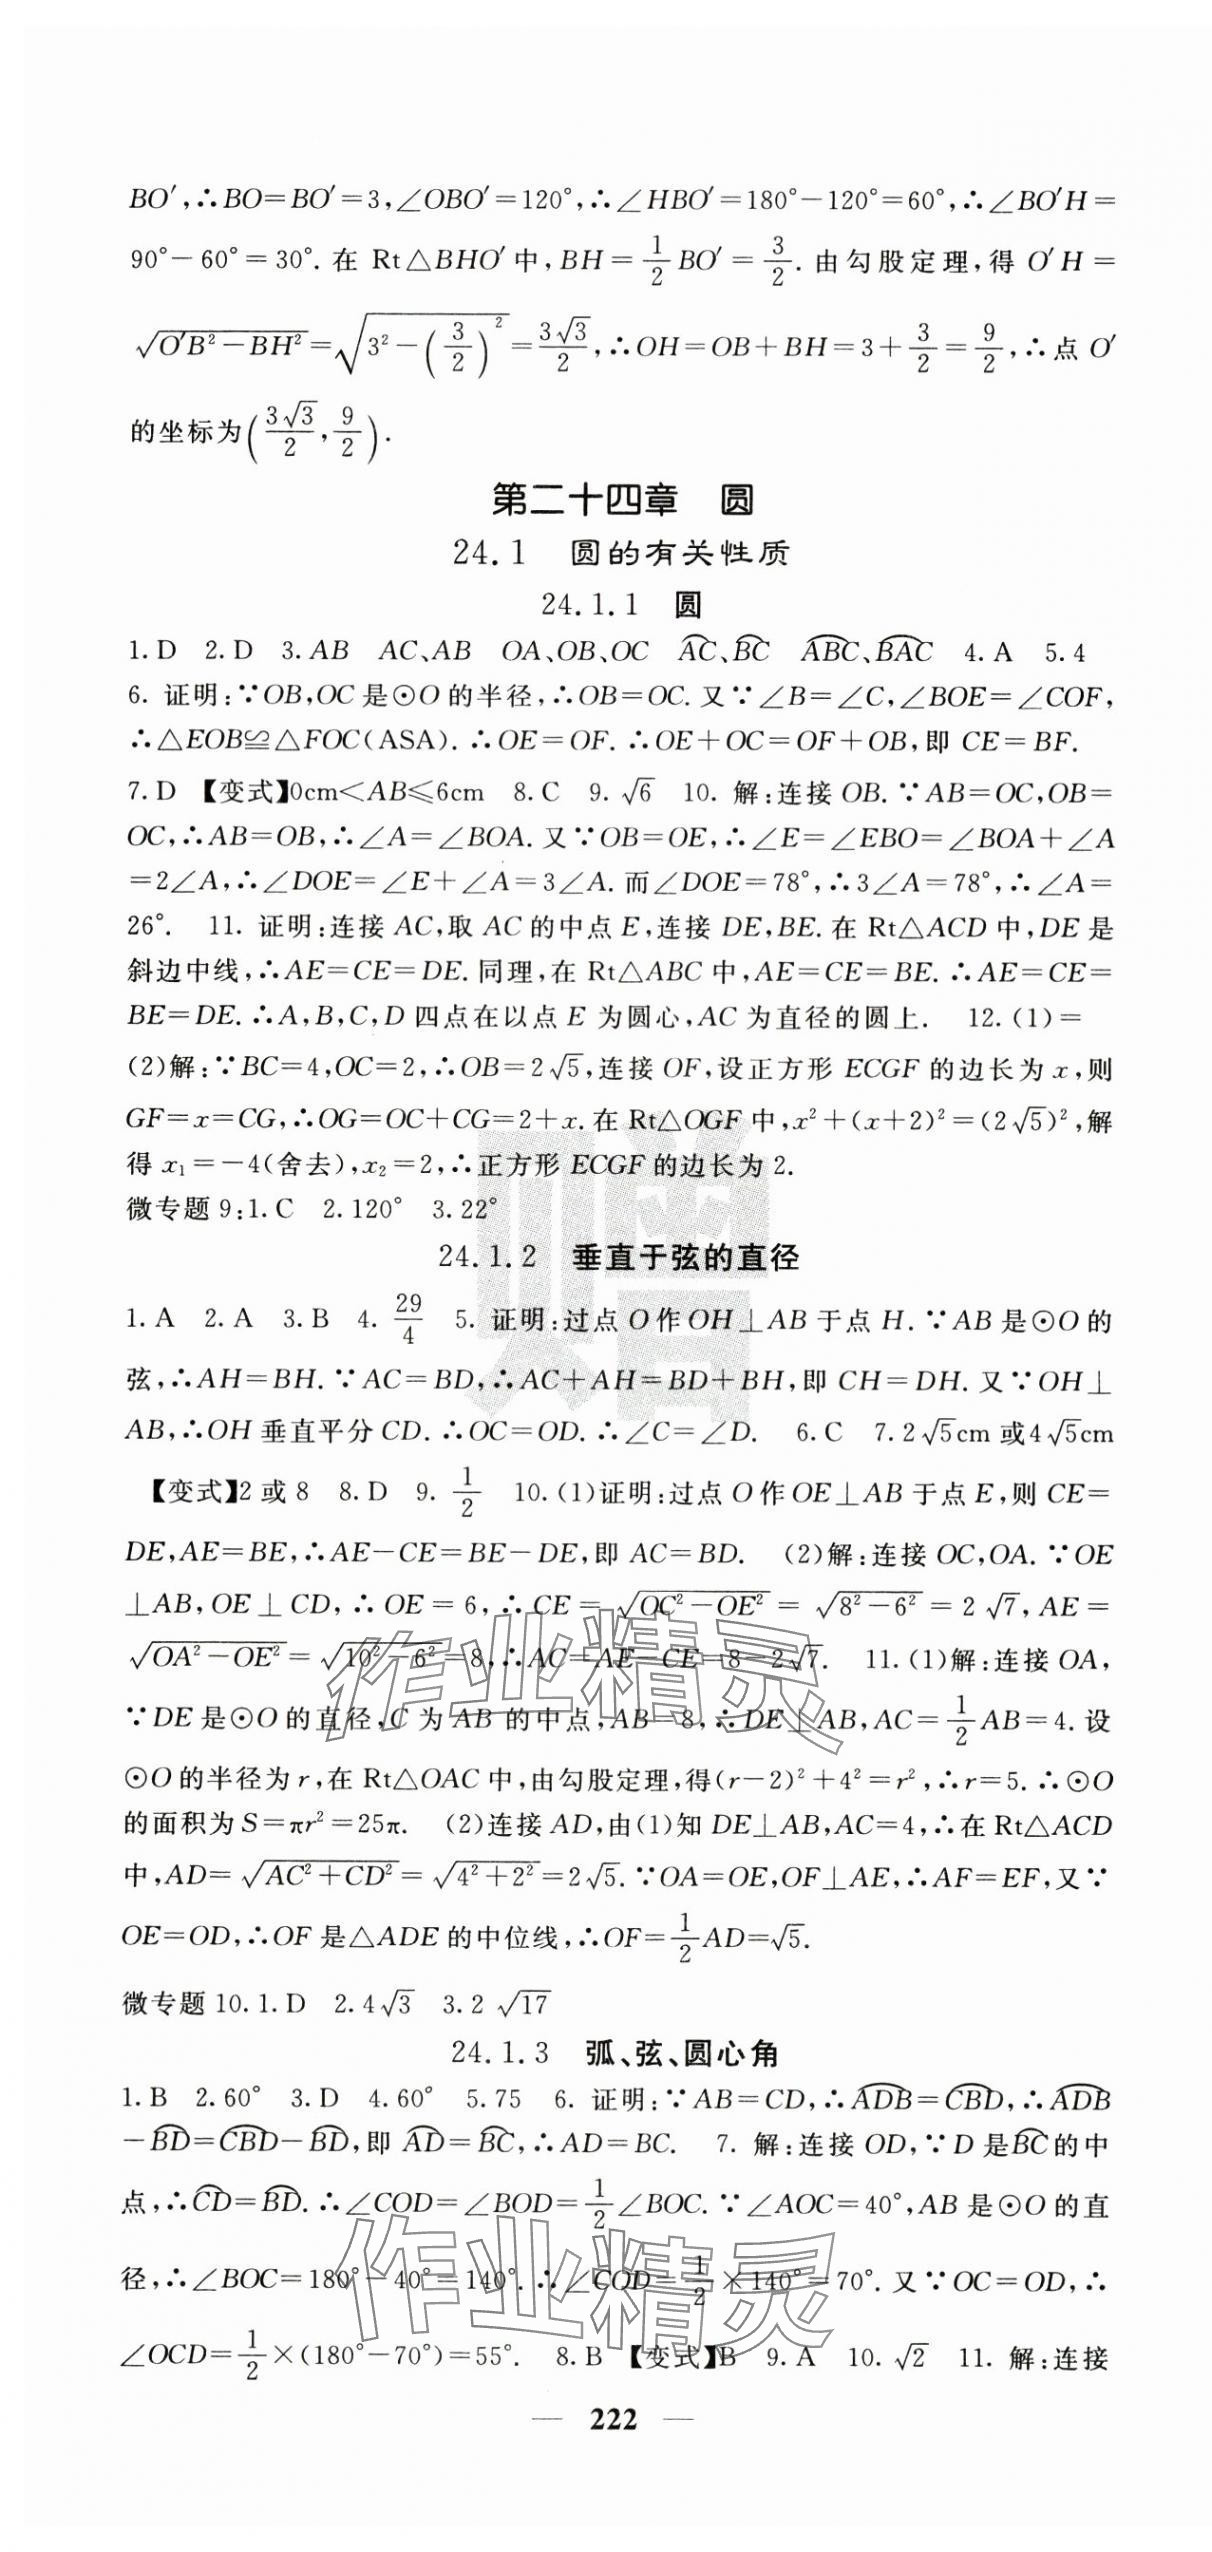 BO′,∴BO=BO′=3,∠OBO′=120°,∴∠HBO′=180°−120°=60°,∴∠BO′H=
90°−60°=30°.在 Rt△BHO′中,BH=1/2 BO′=3/2.由勾股定理,得 O′H=
√(O′B²−BH²)=√(3²−(3/2)²)=3√3/2,∴OH=OB+BH=3+3/2=9/2,∴点 O′
的坐标为(3√3/2,9/2).
第二十四章 圆
24.1 圆的有关性质
24.1.1 圆
1.D 2.D 3.AB AC、AB OA、OB、OC A͡C、B͡C A͡BC、B͡AC 4.A 5.4
6. 证明:∵OB,OC是⊙O的半径,∴OB=OC.又∵∠B=∠C,∠BOE=∠COF,
∴△EOB≌△FOC(ASA).∴OE=OF.∴OE+OC=OF+OB,即 CE=BF.
7.D 【变式】0cm<AB≤6cm 8.C 9.√6 10. 解:连接 OB.∵AB=OC,OB=
OC,∴AB=OB,∴∠A=∠BOA.又∵OB=OE,∴∠E=∠EBO=∠BOA+∠A
=2∠A,∴∠DOE=∠E+∠A=3∠A.而∠DOE=78°,∴3∠A=78°,∴∠A=
26°. 11. 证明:连接 AC,取 AC 的中点 E,连接 DE,BE.在 Rt△ACD 中,DE 是
斜边中线,∴AE=CE=DE.同理,在 Rt△ABC 中,AE=CE=BE.∴AE=CE=
BE=DE.∴A,B,C,D 四点在以点 E 为圆心,AC 为直径的圆上. 12.(1)=
(2)解:∵BC=4,OC=2,∴OB=2√5,连接 OF,设正方形 ECGF 的边长为 x,则
GF=x=CG,∴OG=OC+CG=2+x.在 Rt△OGF 中,x²+(x+2)²=(2√5)²,解
得 x₁=−4(舍去),x₂=2,∴正方形 ECGF 的边长为 2.
微专题 9:1.C 2.120° 3.22°
24.1.2 垂直于弦的直径
1.A 2.A 3.B 4. 29/4 5. 证明:过点 O 作 OH⊥AB 于点 H.∵AB 是⊙O 的
弦,∴AH=BH.∵AC=BD,∴AC+AH=BD+BH,即 CH=DH.又∵OH⊥
AB,∴OH 垂直平分 CD.∴OC=OD.∴∠C=∠D. 6.C 7.2√5cm 或4√5cm
【变式】2 或 8 8.D 9. 1/2 10.(1)证明:过点 O 作 OE⊥AB 于点 E,则 CE=
DE,AE=BE,∴AE−CE=BE−DE,即 AC=BD. (2)解:连接 OC,OA.∵OE
⊥AB,OE⊥CD,∴OE=6,∴CE=√(OC²−OE²)=√(8²−6²)=2√7,AE=
√(OA²−OE²)=√(10²−6²)=8,∴AC=AE−CE=8−2√7. 11.(1)解:连接 OA,
∵DE 是⊙O 的直径,C 为 AB 的中点,AB=8,∴DE⊥AB,AC=1/2 AB=4.设
⊙O 的半径为 r,在 Rt△OAC 中,由勾股定理,得(r−2)²+4²=r²,∴r=5.∴⊙O
的面积为 S=πr²=25π. (2)连接 AD,由(1)知 DE⊥AB,AC=4,∴在 Rt△ACD
中,AD=√(AC²+CD²)=√(4²+2²)=2√5.∵OA=OE,OF⊥AE,∴AF=EF,又∵
OE=OD,∴OF 是△ADE 的中位线,∴OF=1/2 AD=√5.
微专题 10.1.D 2.4√3 3.2√17
24.1.3 弧、弦、圆心角
1.B 2.60° 3.D 4.60° 5.75 6. 证明:∵AB=CD,∴A͡DB=C͡BD,∴A͡DB
−B͡D=C͡BD−B͡D,即 A͡D=B͡C,∴AD=BC. 7. 解:连接 OD,∵D 是B͡C的中
点,∴C͡D=B͡D.∴∠COD=∠BOD=1/2∠BOC.∵∠AOC=40°,AB 是⊙O 的直
径,∴∠BOC=180°−40°=140°.∴∠COD=1/2×140°=70°.又∵OC=OD,∴
∠OCD=1/2×(180°−70°)=55°. 8.B 【变式】B 9.A 10.√2 11. 解:连接
— 222 —
赠
作业精灵
作业精灵